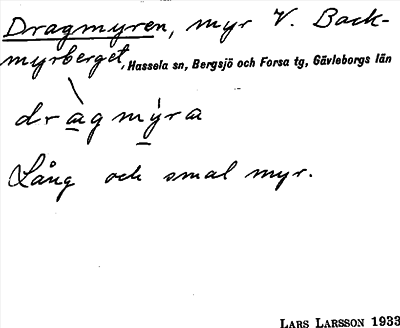 Dragmyren, myr V. Back-
myrberget, Hassela sn, Bergsjö och Forsa tg, Gävleborgs län
dràgmýra
Lång och smal myr.
LARS LARSSON 1933